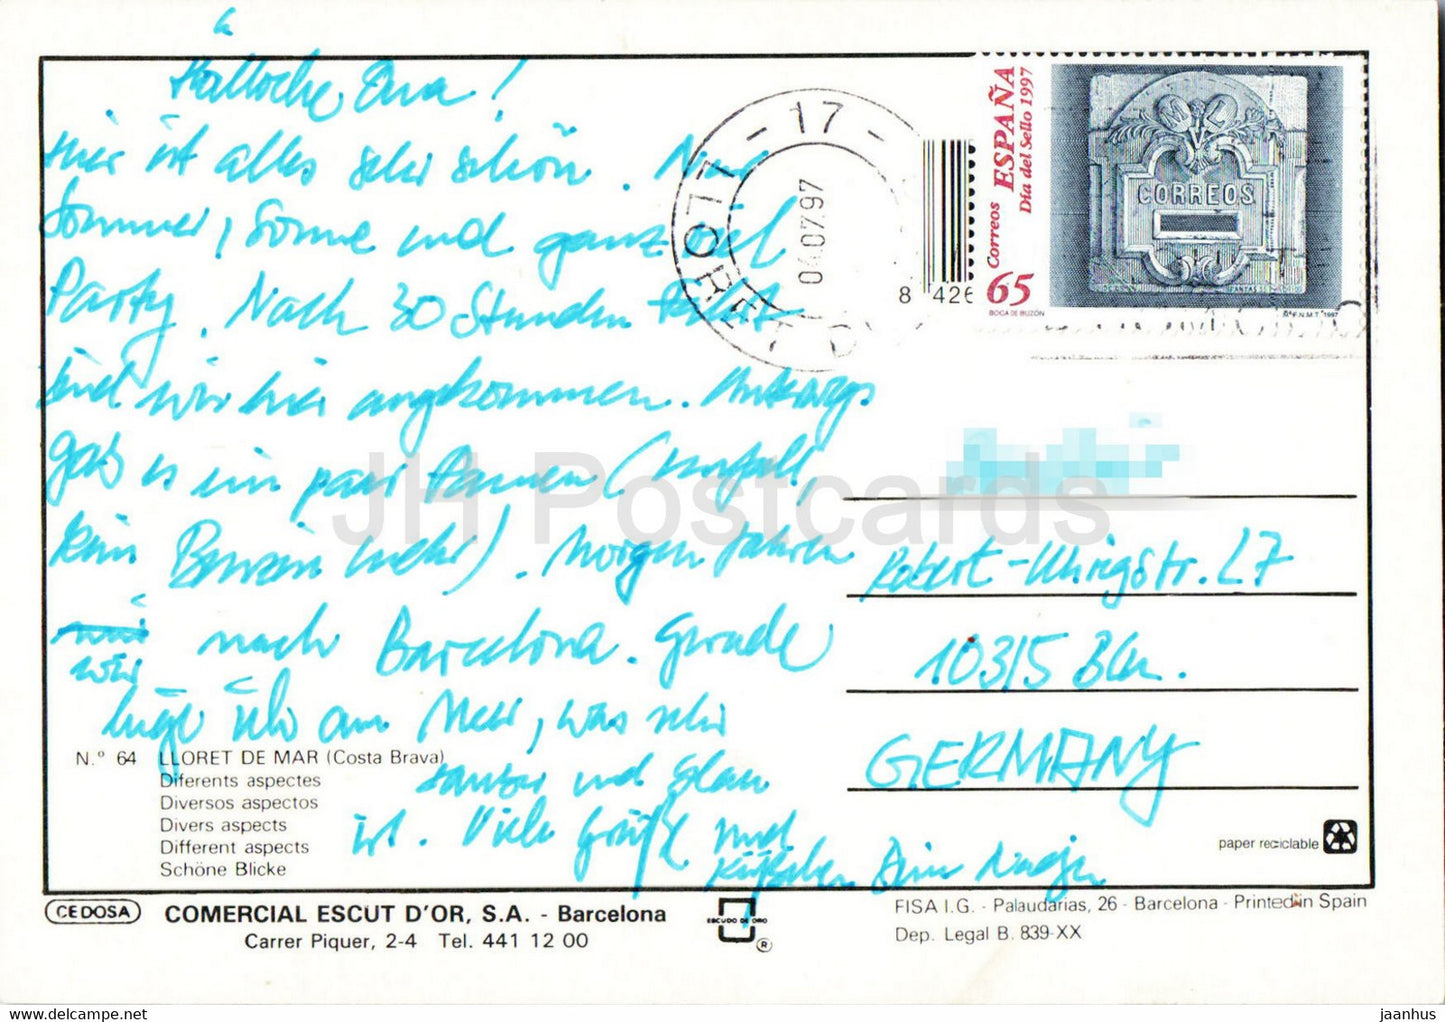 Hallöche Eva!
Hier ist alles sehr schön. Nur
Sommer, Sonne und ganz viel
Party. Nach 30 Stunden Fahrt
sind wir hier angekommen. Unterwegs
gab es ein paar Pannen (Unfall,
kein Benzin mehr). Morgen fahren
wir nach Barcelona. Gerade
liege ich am Meer, was sehr
sauber und blau
ist. Viele Grüße und
Küßchen Deine Nadja
17
LLORET
04.07.97
8 426
ESPAÑA
Día del Sello 1997
Correos
65
CORREOS
BOCA DE BUZÓN
F.N.M.T. 1997
Robert-Uhrigstr. 27
10315 Bln.
GERMANY
N.º 64 LLORET DE MAR (Costa Brava)
Diferents aspectes
Diversos aspectos
Divers aspects
Different aspects
Schöne Blicke
paper reciclable
CEDOSA
COMERCIAL ESCUT D'OR, S.A. - Barcelona
Carrer Piquer, 2-4 Tel. 441 12 00
ESCUDO DE ORO
®
FISA I.G. - Palaudarias, 26 - Barcelona - Printed in Spain
Dep. Legal B. 839-XX
JH Postcards
hipstamp.com/store/jaanhus